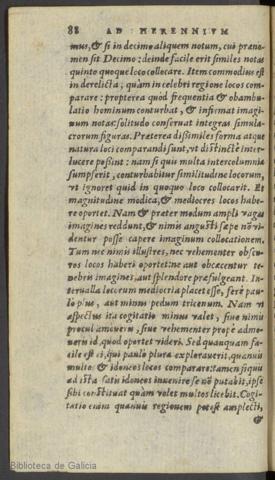 88 AD HERENNIVM
mus, & si in decimo aliquem notum, cui præno-
men sit Decimo: deinde facile erit similes notas
quinto quoque loco collocare. Item commodius est
in derelicta, quàm in celebri regione locos com-
parare: propterea quòd frequentia & obambu-
latio hominum conturbat, & infirmat imagi-
num notas: solitudo conseruat integras simula-
crorum figuras. Præterea dissimiles forma atque
natura loci comparandi sunt, vt distinctè inter-
lucere possint: nam si quis multa intercolumnia
sumpserit, conturbabitur similitudine locorum,
vt ignoret quid in quoquo loco collocarit. Et
magnitudine modica, & mediocres locos habe-
re oportet. Nam & præter modum ampli vagas
imagines reddunt, & nimis angusti sæpe nō vi-
dentur posse capere imaginum collocationem.
Tum nec nimis illustres, nec vehementer obscu-
ros locos haberi oportet: ne aut obcæcentur te-
nebris imagines, aut splendore præfulgeant. In-
terualla locorum mediocria placet esse, ferè pau-
lo plus, aut minus pedum tricenum. Nam vt
aspectus ita cogitatio minus valet, siue nimis
procul amoueris, siue vehementer propè admo-
ueris id, quod oportet videri. Sed quanquam fa-
cile est ei, qui paulò plura explorauerit, quamuis
multos & idoneos locos comparare: tamen si quis
ad ista satis idoneos inuenire se nō putabit, ipse
sibi constituat quàm volet multos licebit. Cogi-
tatio enim quamuis regionem potest amplecti,
&
Biblioteca de Galicia